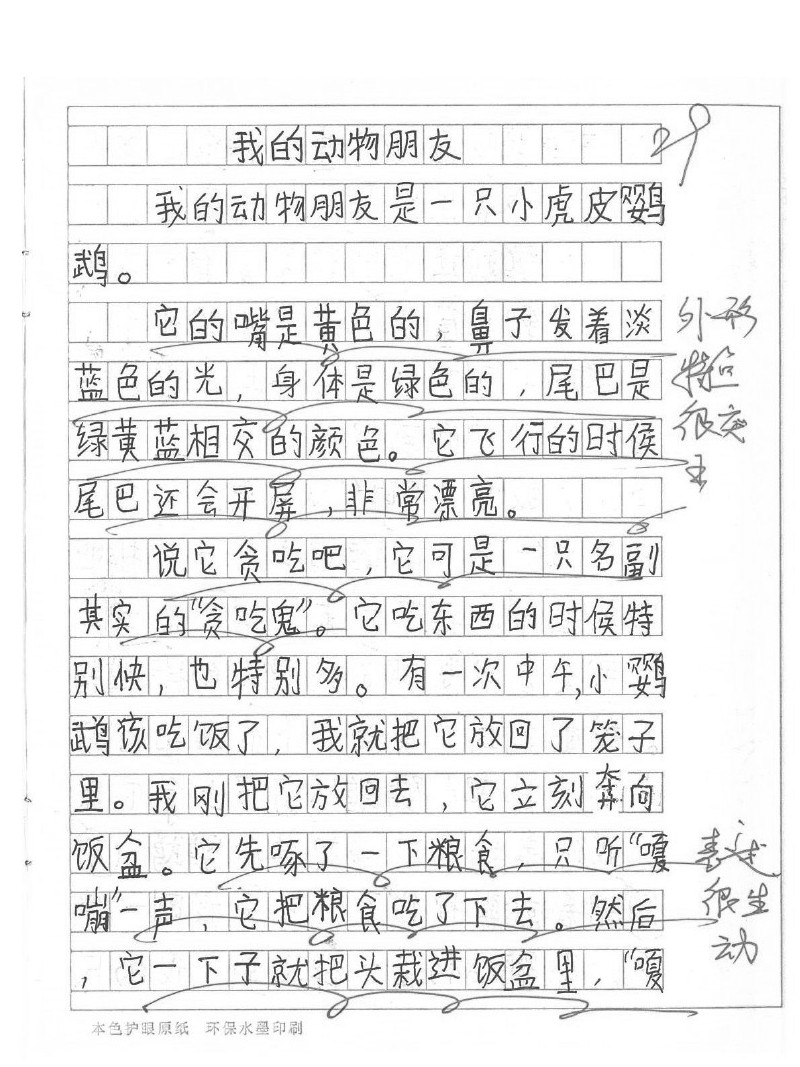 我的动物朋友
29
我的动物朋友是一只小虎皮鹦
鹉。
它的嘴是黄色的，鼻子发着淡
蓝色的光，身体是绿色的，尾巴是
绿黄蓝相交的颜色。它飞行的时侯
尾巴还会开屏，非常漂亮。
外形
特点
很突
出
说它贪吃吧，它可是一只名副
其实的“贪吃鬼”。它吃东西的时侯特
别快，也特别多。有一次中午，小鹦
鹉该吃饭了，我就把它放回了笼子
里。我刚把它放回去，它立刻奔向
饭盆。它先啄了一下粮食，只听“嘎
嘣”一声，它把粮食吃了下去。然后
，它一下子就把头栽进饭盆里，“嘎
表述
很生
动
本色护眼原纸 环保水墨印刷